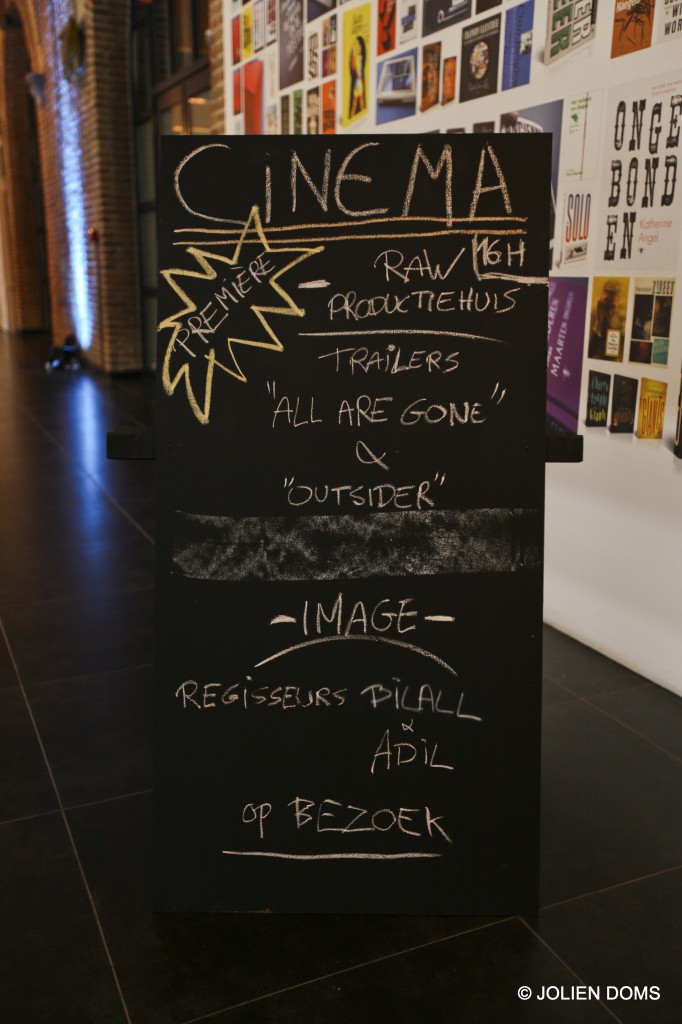 CiNEMA
PREMIÈRE
16H
- RAW
PRODUCTIEHUIS
TRAiLERS
"ALL ARE GONE"
&
"OUTSIDER"
-IMAGE-
REGiSSEURS BiLALL
&
ADiL
op BEZOEK
ONGE
BOND
EN
Katherine
Angel
SOLO
MAARTEN
© JOLIEN DOMS